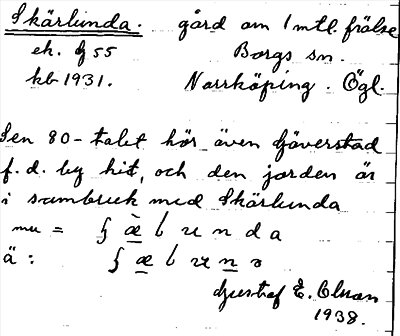 Skärlunda. gård om 1 mtl. frälse
ek. 55 Borgs sn.
kb 1931. Norrköping. Ögl.
Sen 80-talet hör även Gäverstad
f. d. by hit, och den jorden är
i sambruk med Skärlunda
mu =
ä :
Gustaf E. Olsson
1938.